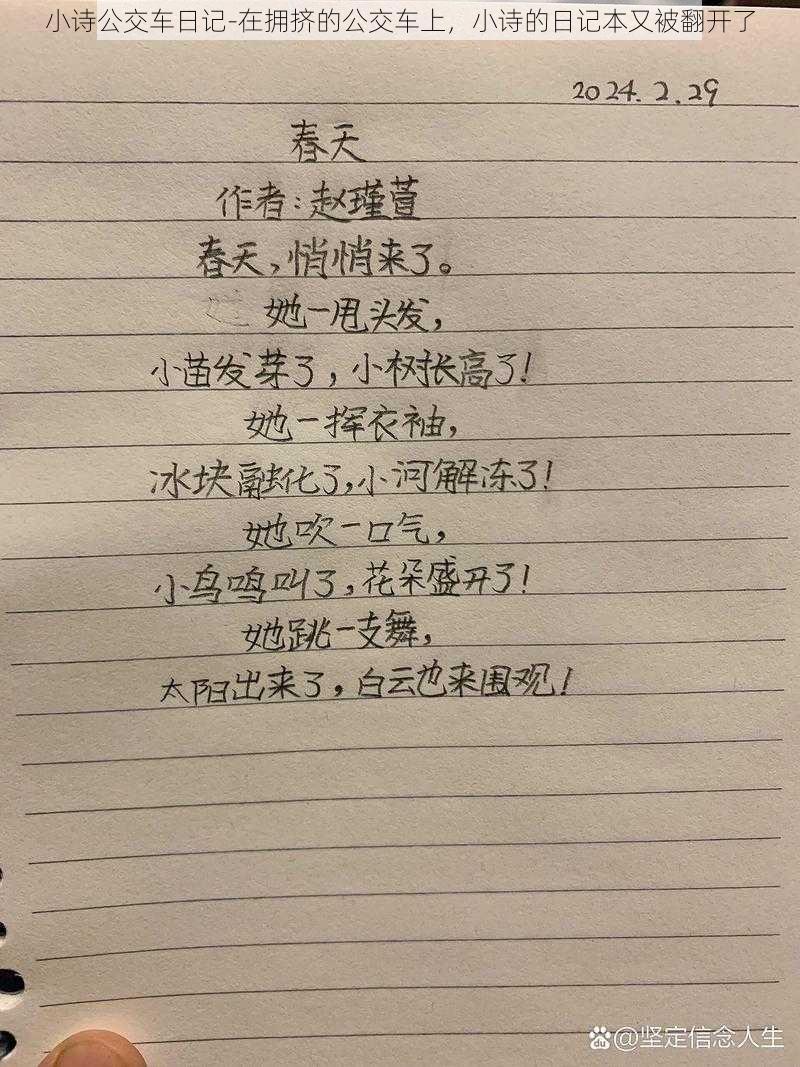 小诗公交车日记-在拥挤的公交车上，小诗的日记本又被翻开了
2024.2.29
春天
作者：赵瑾萱
春天，悄悄来了。
她一甩头发，
小苗发芽了，小树长高了！
她一挥衣袖，
冰块融化了，小河解冻了！
她吹一口气，
小鸟鸣叫了，花朵盛开了！
她跳一支舞，
太阳出来了，白云也来围观！
@坚定信念人生